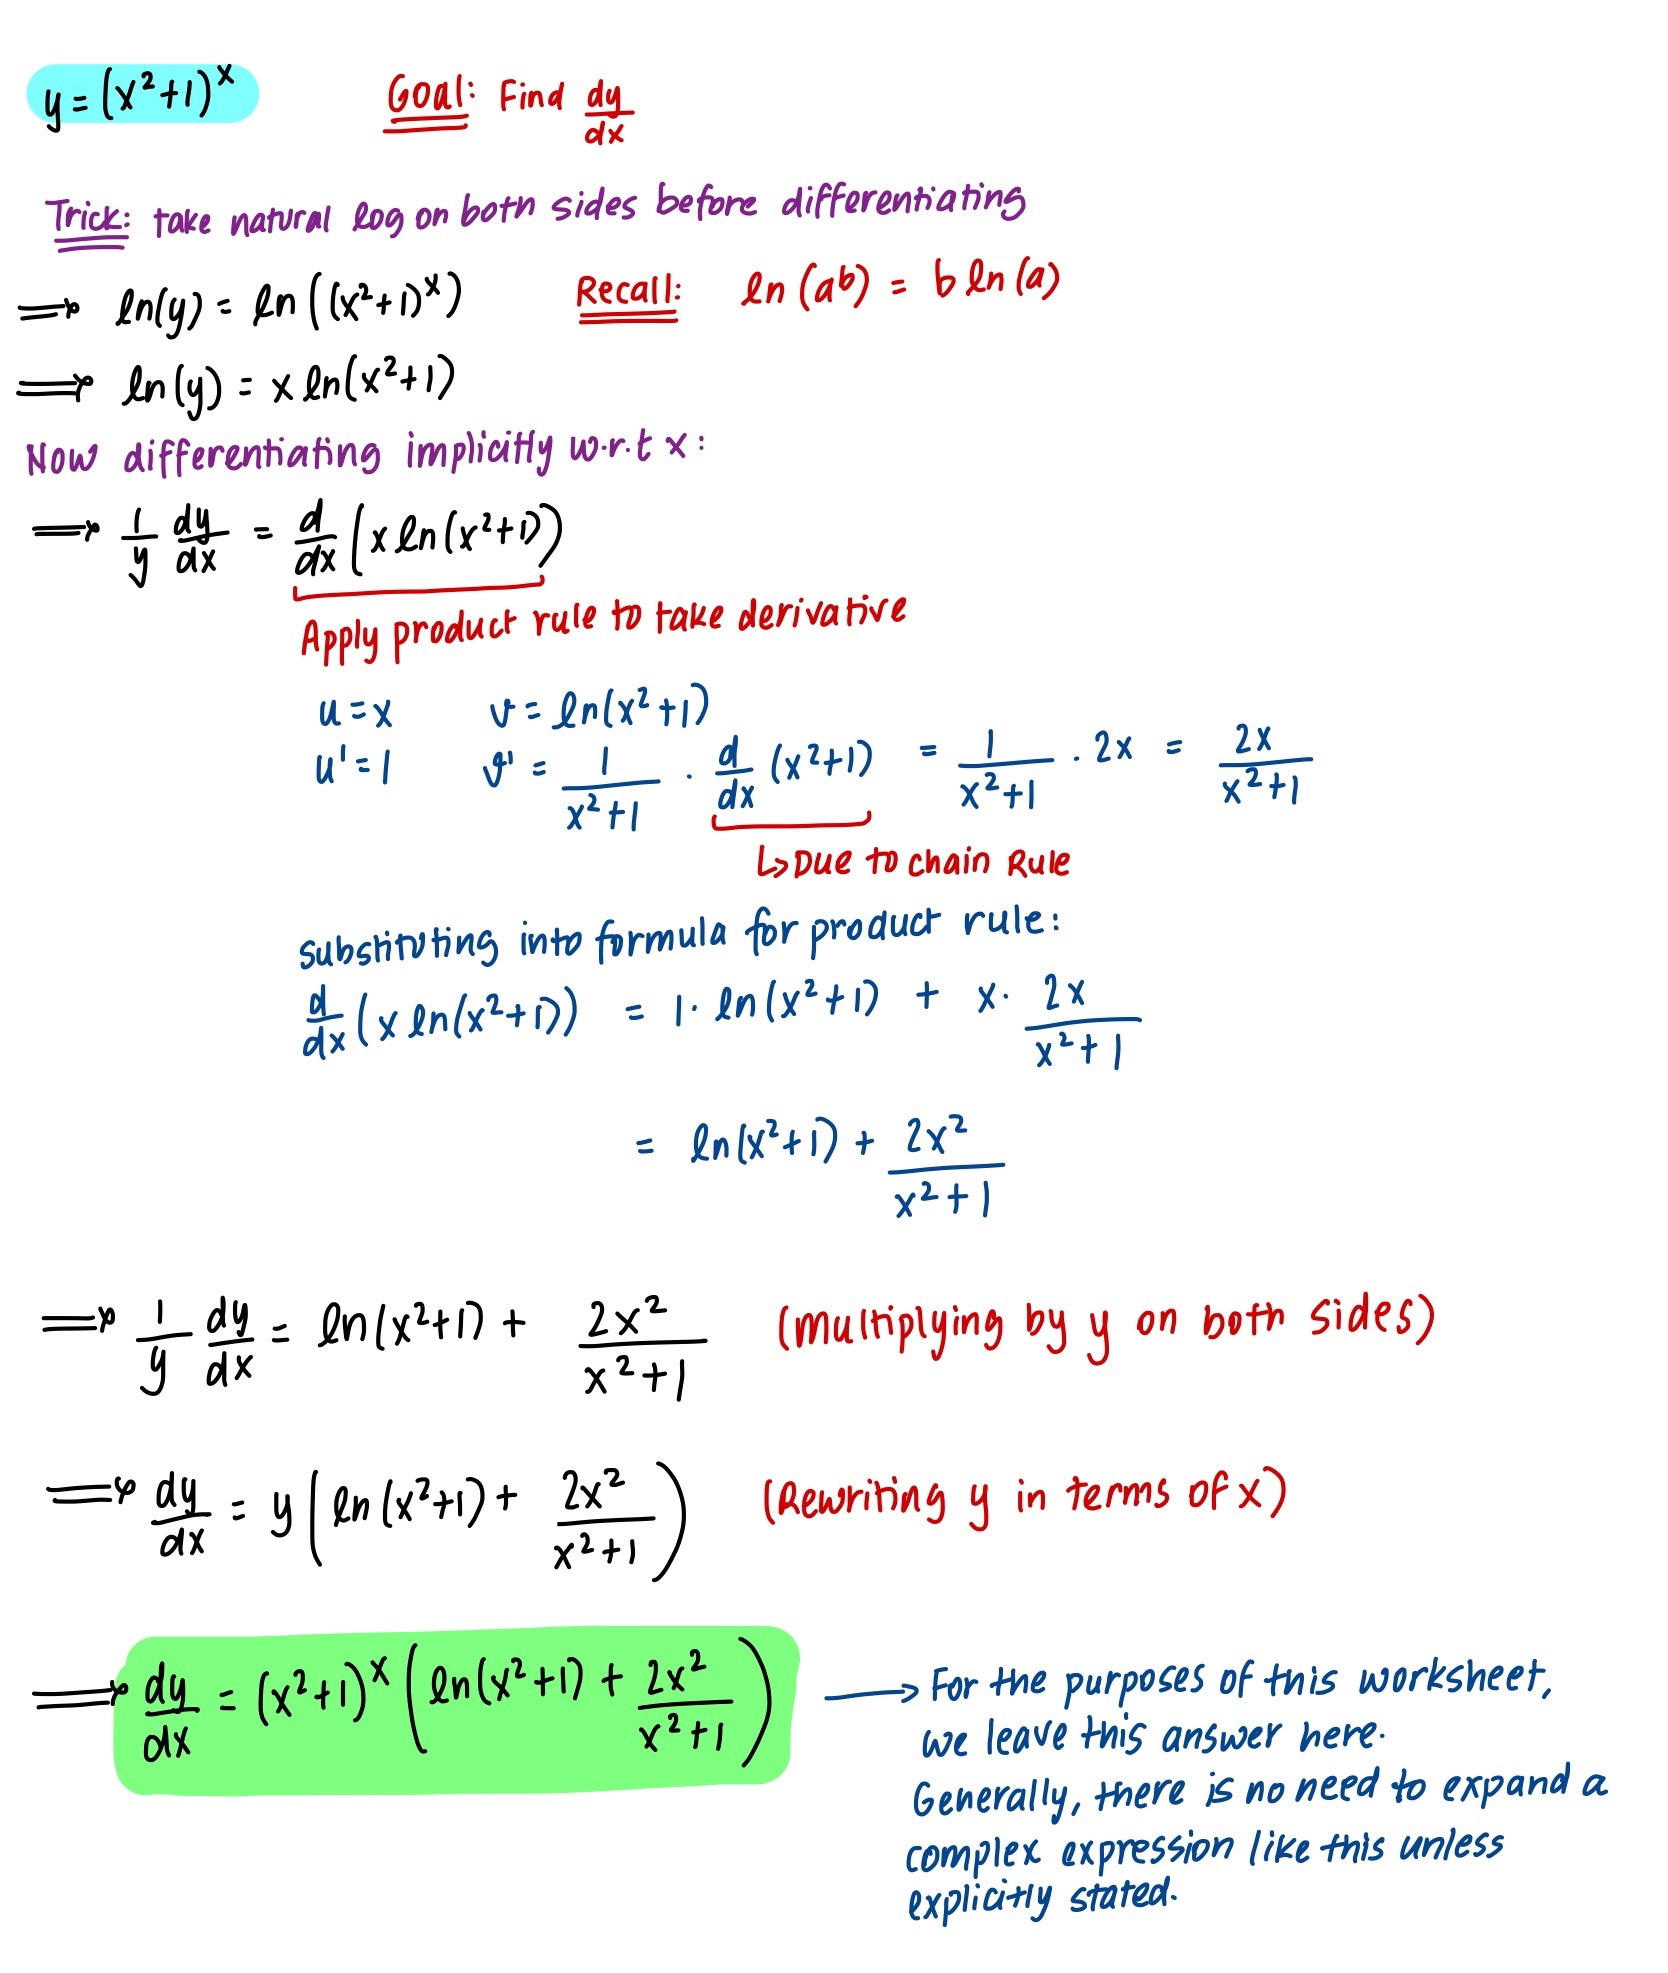 y = (x²+1)ˣ Goal: Find dy/dx
Trick: take natural log on both sides before differentiating
⟹ ln(y) = ln((x²+1)ˣ) Recall: ln(aᵇ) = b ln(a)
⟹ ln(y) = x ln(x²+1)
Now differentiating implicitly w.r.t x:
⟹ 1/y dy/dx = d/dx (x ln(x²+1))
Apply product rule to take derivative
u = x v = ln(x²+1)
u' = 1 v' = 1/(x²+1) · d/dx (x²+1) = 1/(x²+1) · 2x = 2x/(x²+1)
↳ Due to chain Rule
substituting into formula for product rule:
d/dx (x ln(x²+1)) = 1· ln(x²+1) + x· 2x/(x²+1)
= ln(x²+1) + 2x²/(x²+1)
⟹ 1/y dy/dx = ln(x²+1) + 2x²/(x²+1) (multiplying by y on both sides)
⟹ dy/dx = y(ln(x²+1) + 2x²/(x²+1)) (Rewriting y in terms of x)
⟹ dy/dx = (x²+1)ˣ (ln(x²+1) + 2x²/(x²+1)) → For the purposes of this worksheet,
we leave this answer here.
Generally, there is no need to expand a
complex expression like this unless
explicitly stated.